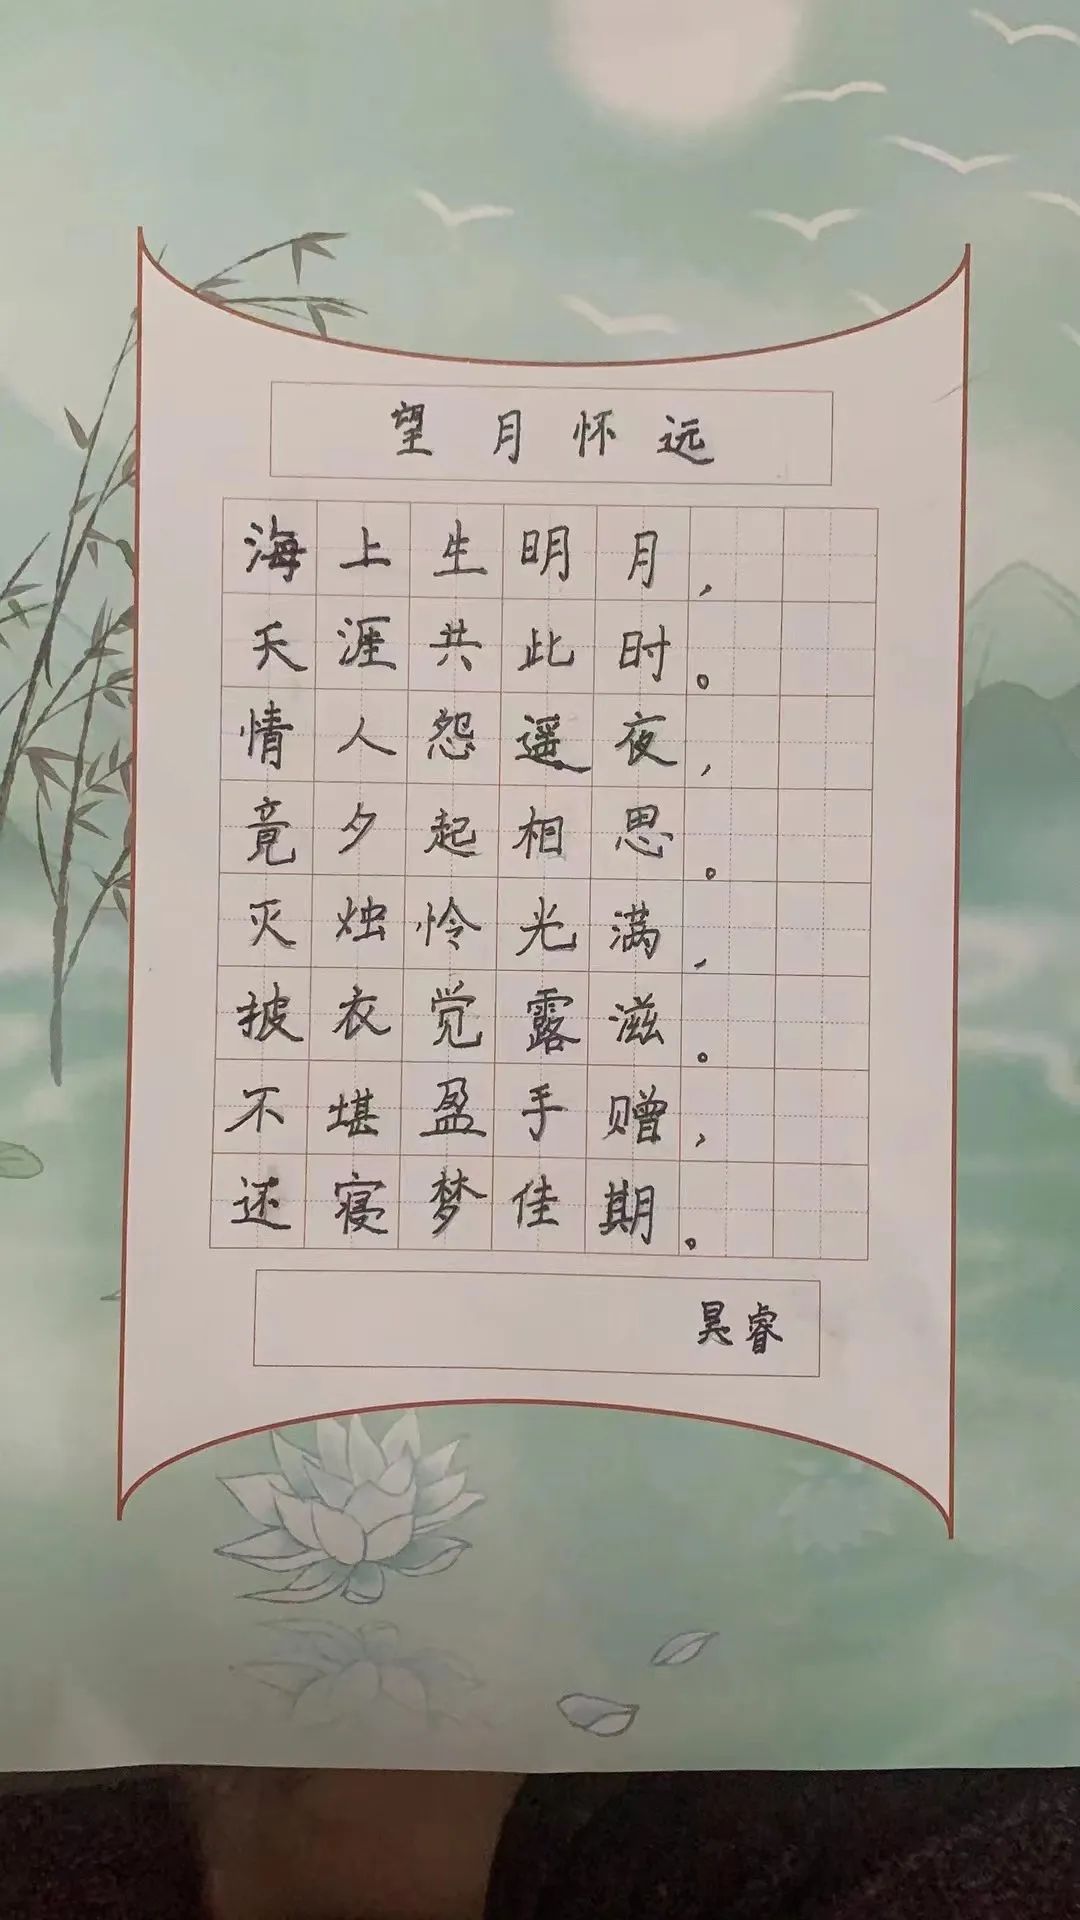 望月怀远
海上生明月，
天涯共此时。
情人怨遥夜，
竟夕起相思。
灭烛怜光满，
披衣觉露滋。
不堪盈手赠，
还寝梦佳期。
吴睿